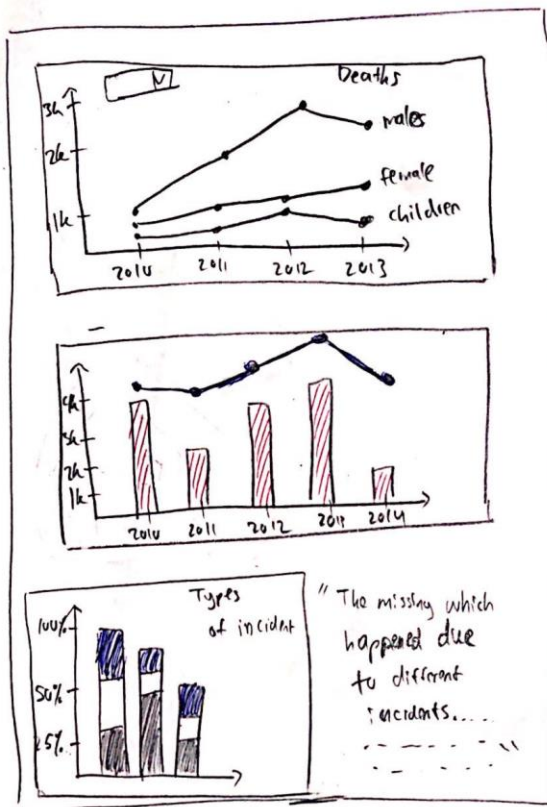 Deaths
3k
2k
1k
males
female
children
2010
2011
2012
2013
4k
3k
2k
1k
2010
2011
2012
2014
Types
of incident
100%
50%
25%
" The missing which
happened due
to different
incidents.....
"